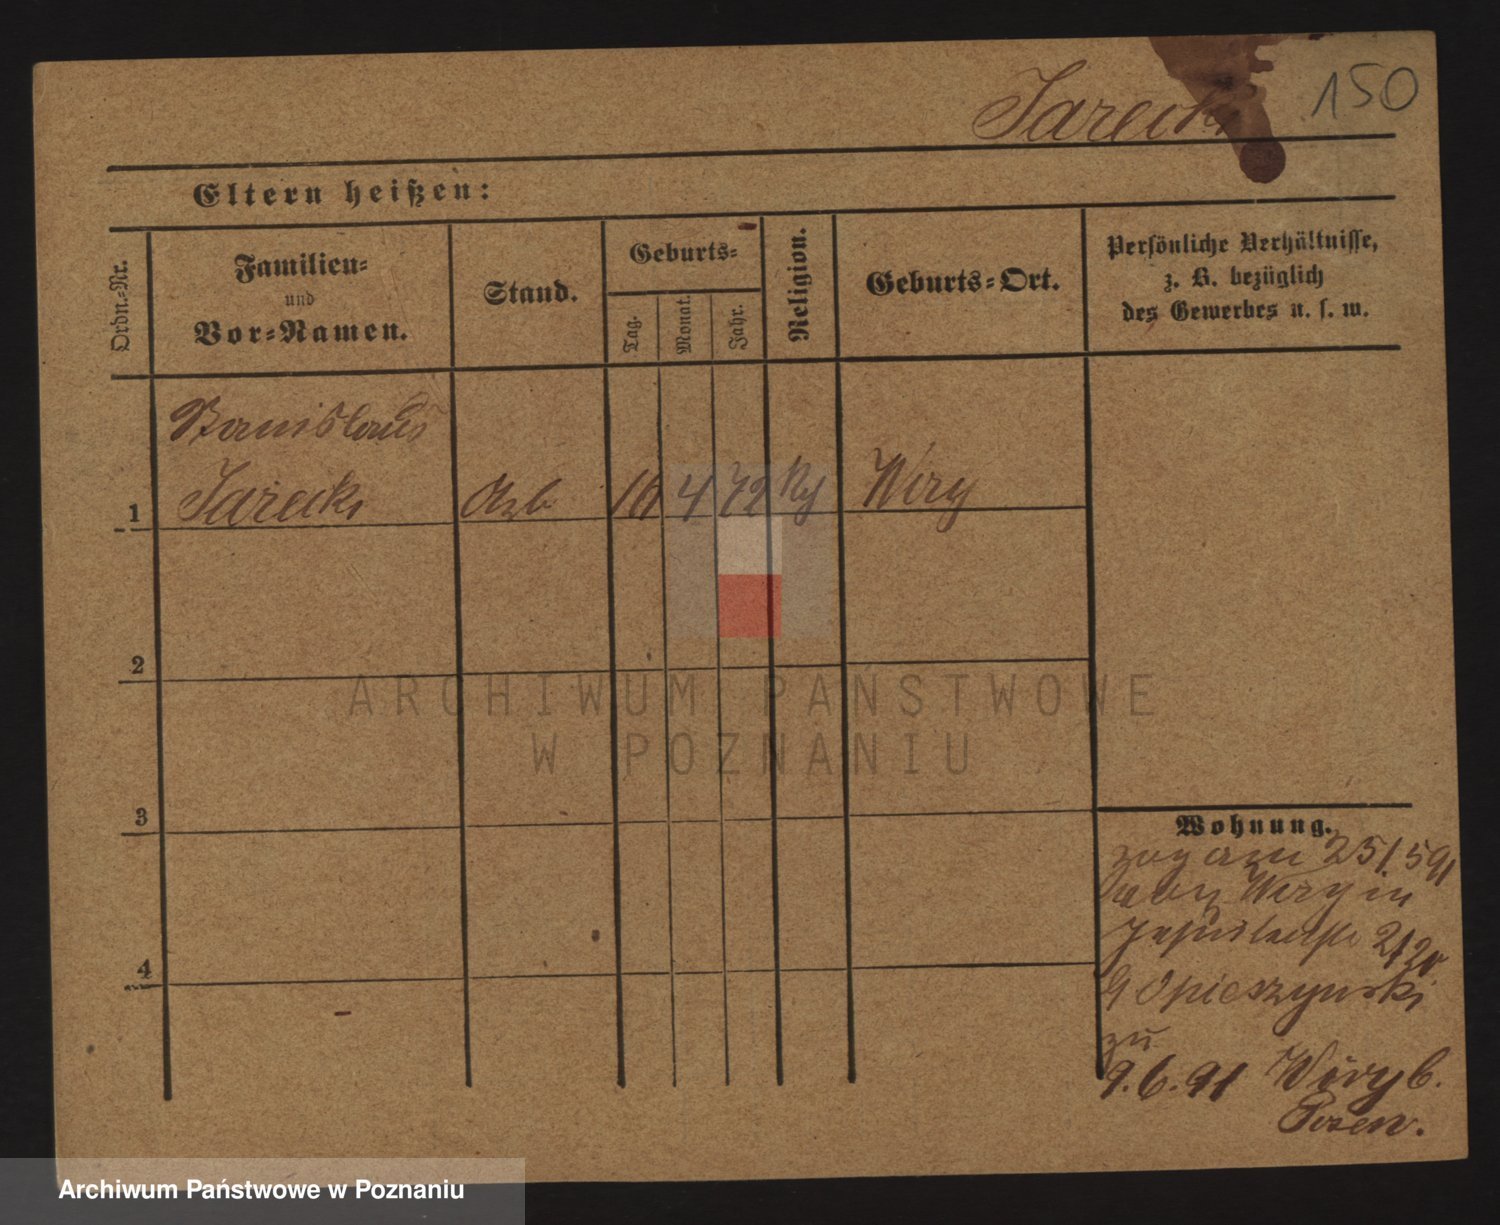 Jarecki
150
Eltern heißen:
Ordn.-Nr.
Familien-
und
Vor-Namen.
Stand.
Geburts-
Tag.
Monat.
Jahr.
Religion.
Geburts-Ort.
Persönliche Verhältnisse,
z. B. bezüglich
des Gewerbes u. s. w.
Stanislaus
1 Jarecki Arb 4 72 Wiry
2
ARCHIWUM PAŃSTWOWE
W POZNANIU
3
4
Wohnung.
zog am 25/5 91
Wiry in
Opieszynski
zu
9.6.91 Wiry b.
Posen.
Archiwum Państwowe w Poznaniu